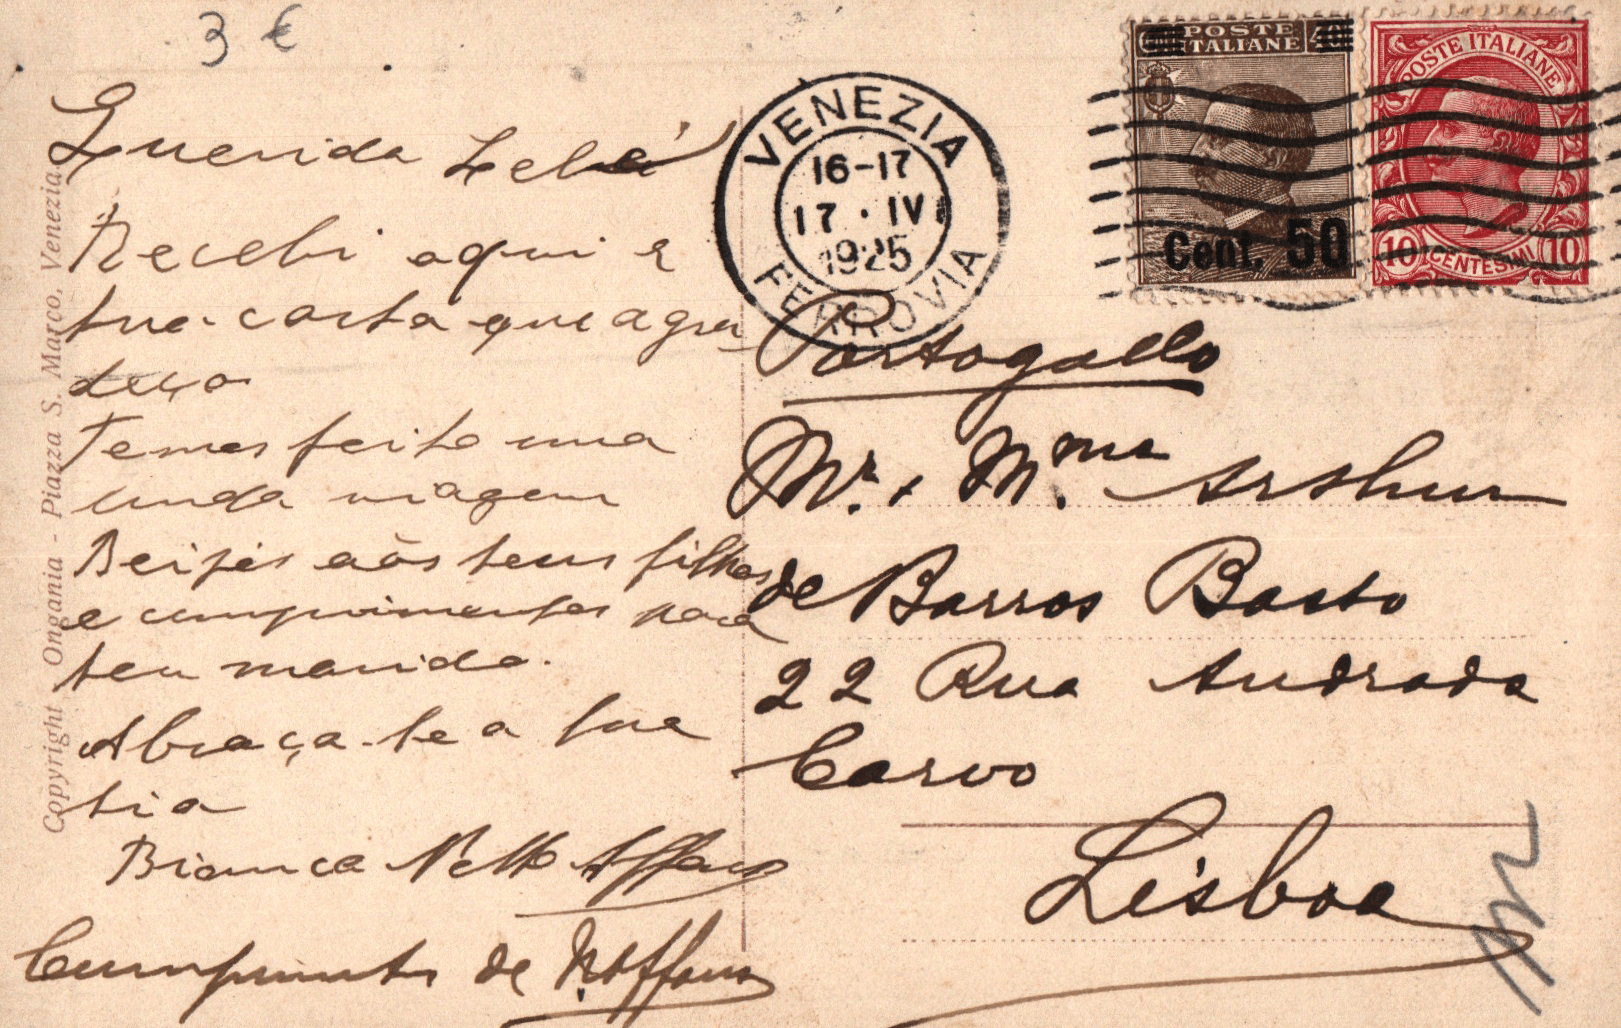 3 €
Querida Lelé
Recebi aqui a
tua carta que agra
deço
Temos feito uma
linda viagem
Beijos aos teus filhos
e cumprimentos para
teu marido.
Abraça-te a tua
tia
Bianca Netto Affonso
Cumprimentos de
Copyright Ongania - Piazza S. Marco, Venezia.
VENEZIA
16-17
17 · IV
1925
FERROVIA
POSTE
ITALIANE
40
Cent. 50
POSTE ITALIANE
10 CENTESIMI 10
Portogallo
Mr. + Mme. Arthur
de Barros Basto
22 Rua Andrada
Corvo
Lisboa